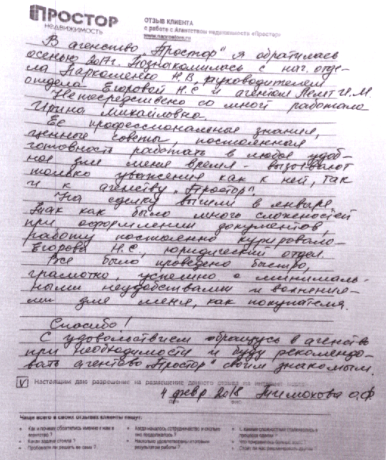 ПРОСТОР
НЕДВИЖИМОСТЬ
ОТЗЫВ КЛИЕНТА
о работе с Агентством недвижимости «Простор»
В агенство "Простор" я обратилась
осенью 2017г. Познакомилась с нач. отде-
ла Пархоменко Н.В, руководителем
отдела Егоровой Н.С и агентом И.М
Непосредственно со мной работала
Ирина Михайловна.
Её профессиональные знания,
ценные советы, постоянная
готовность работать в любое удоб-
ное для меня время - вызывают
только уважение как к ней, так
и к агенству "Простор".
На сделку вышли в январе,
так как было много сложностей
при оформлении документов,
работу постоянно курировало
Егорова Н.С, юридический отдел
Все было проведено быстро,
грамотно, успешно с минималь-
ными неудобствами и волнения-
ми для меня, как покупателя.
Спасибо!
С удовольствием обращусь в агенство
при необходимости и буду рекомендо-
вать агенство "Простор" своим знакомым.
V Настоящим даю разрешение на размещение данного отзыва на
4 февр 2018 Тимохова О.Ф
Чаще всего в своих отзывах клиенты пишут: